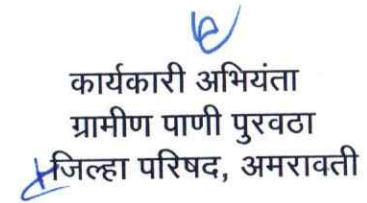 कार्यकारी अभियंता
ग्रामीण पाणी पुरवठा
जिल्हा परिषद, अमरावती